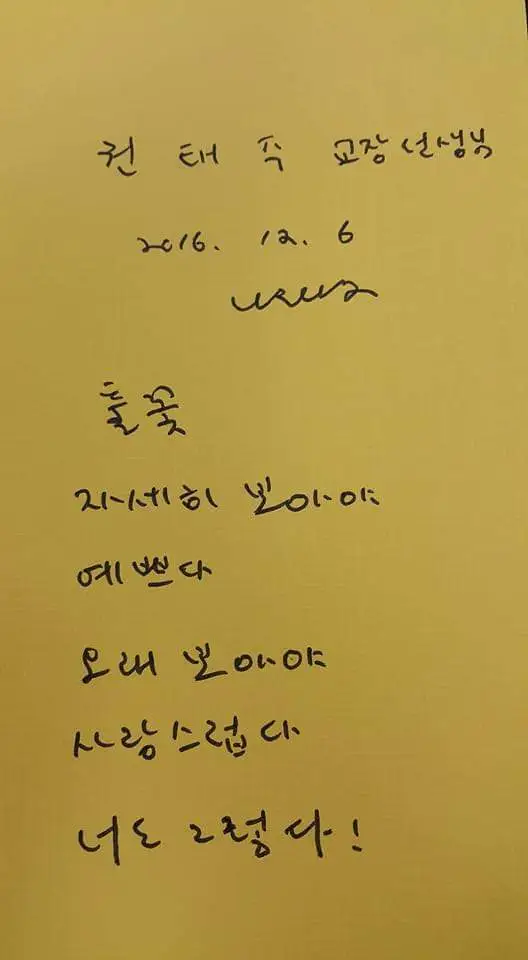 권 태 주 교장선생님
2016. 12. 6
풀꽃
자세히 보아야
예쁘다
오래 보아야
사랑스럽다
너도 그렇다!